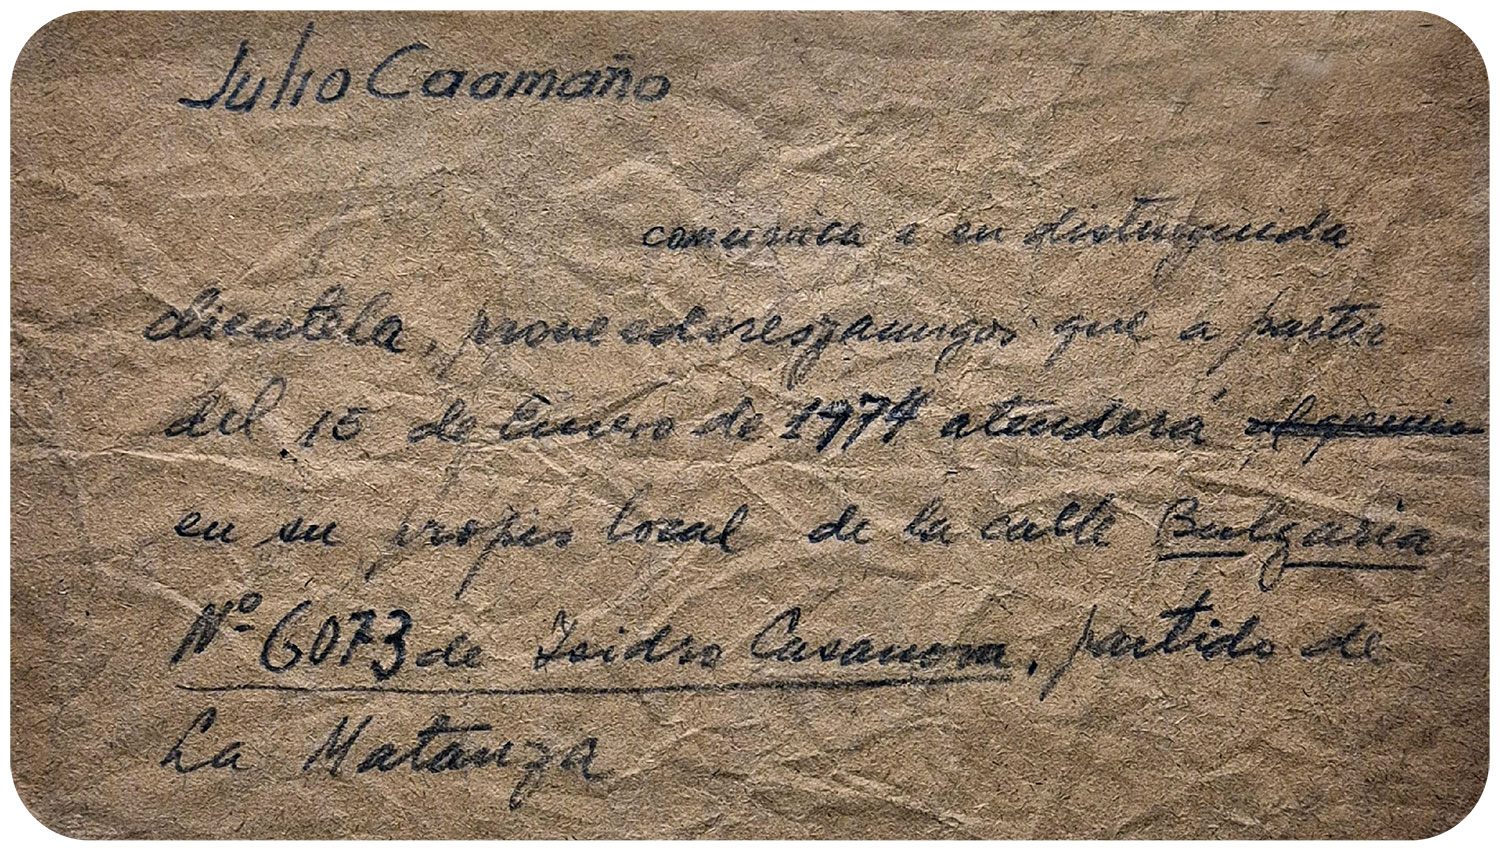 Julio Caamaño
comunica a su distinguida
clientela, proveedores y amigos que a partir
del 15 de Enero de 1974 atenderá
en su propio local de la calle Bulgaria
Nº 6073 de Isidro Casanova, partido de
La Matanza